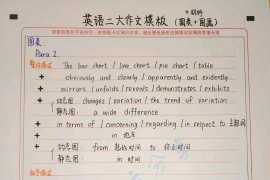 英语二大作文模板
(图表+图画)
图表:
Para 1.
The bar chart / line chart / pie chart / table
+ obviously and clearly / apparently and evidently
+ mirrors / unfolds / reveals / demonstrates / exhibits
+ 动态图: changes / variation / the trend of variation
静态图: a wide difference
+ in terms of / concerning / regarding / in respect to 主题词
+ in 地点
+ 动态图: from 起始时间 to 终止时间
静态图: in 时间